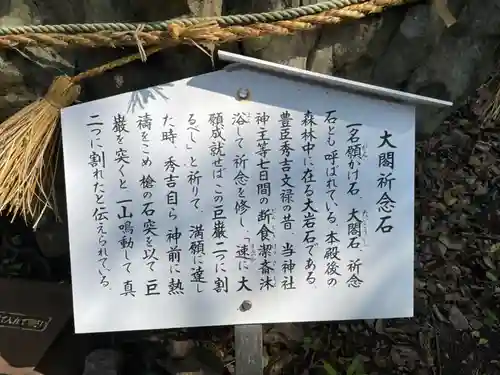 大閤祈念石
一名願かけ石、大閤石、祈念
石とも呼ばれている。本殿後の
森林中に在る大岩石である。
豊臣秀吉文禄の昔、当神社
神主等七日間の断食潔斎沐
浴して祈念を修し、「速に大
願成就せばこの巨巌二つに割
るべし」と祈りて、満願に達し
た時、秀吉自ら神前に熱
祷をこめ槍の石突を以て巨
巌を突くと一山鳴動して真
二つに割れたと伝えられている。